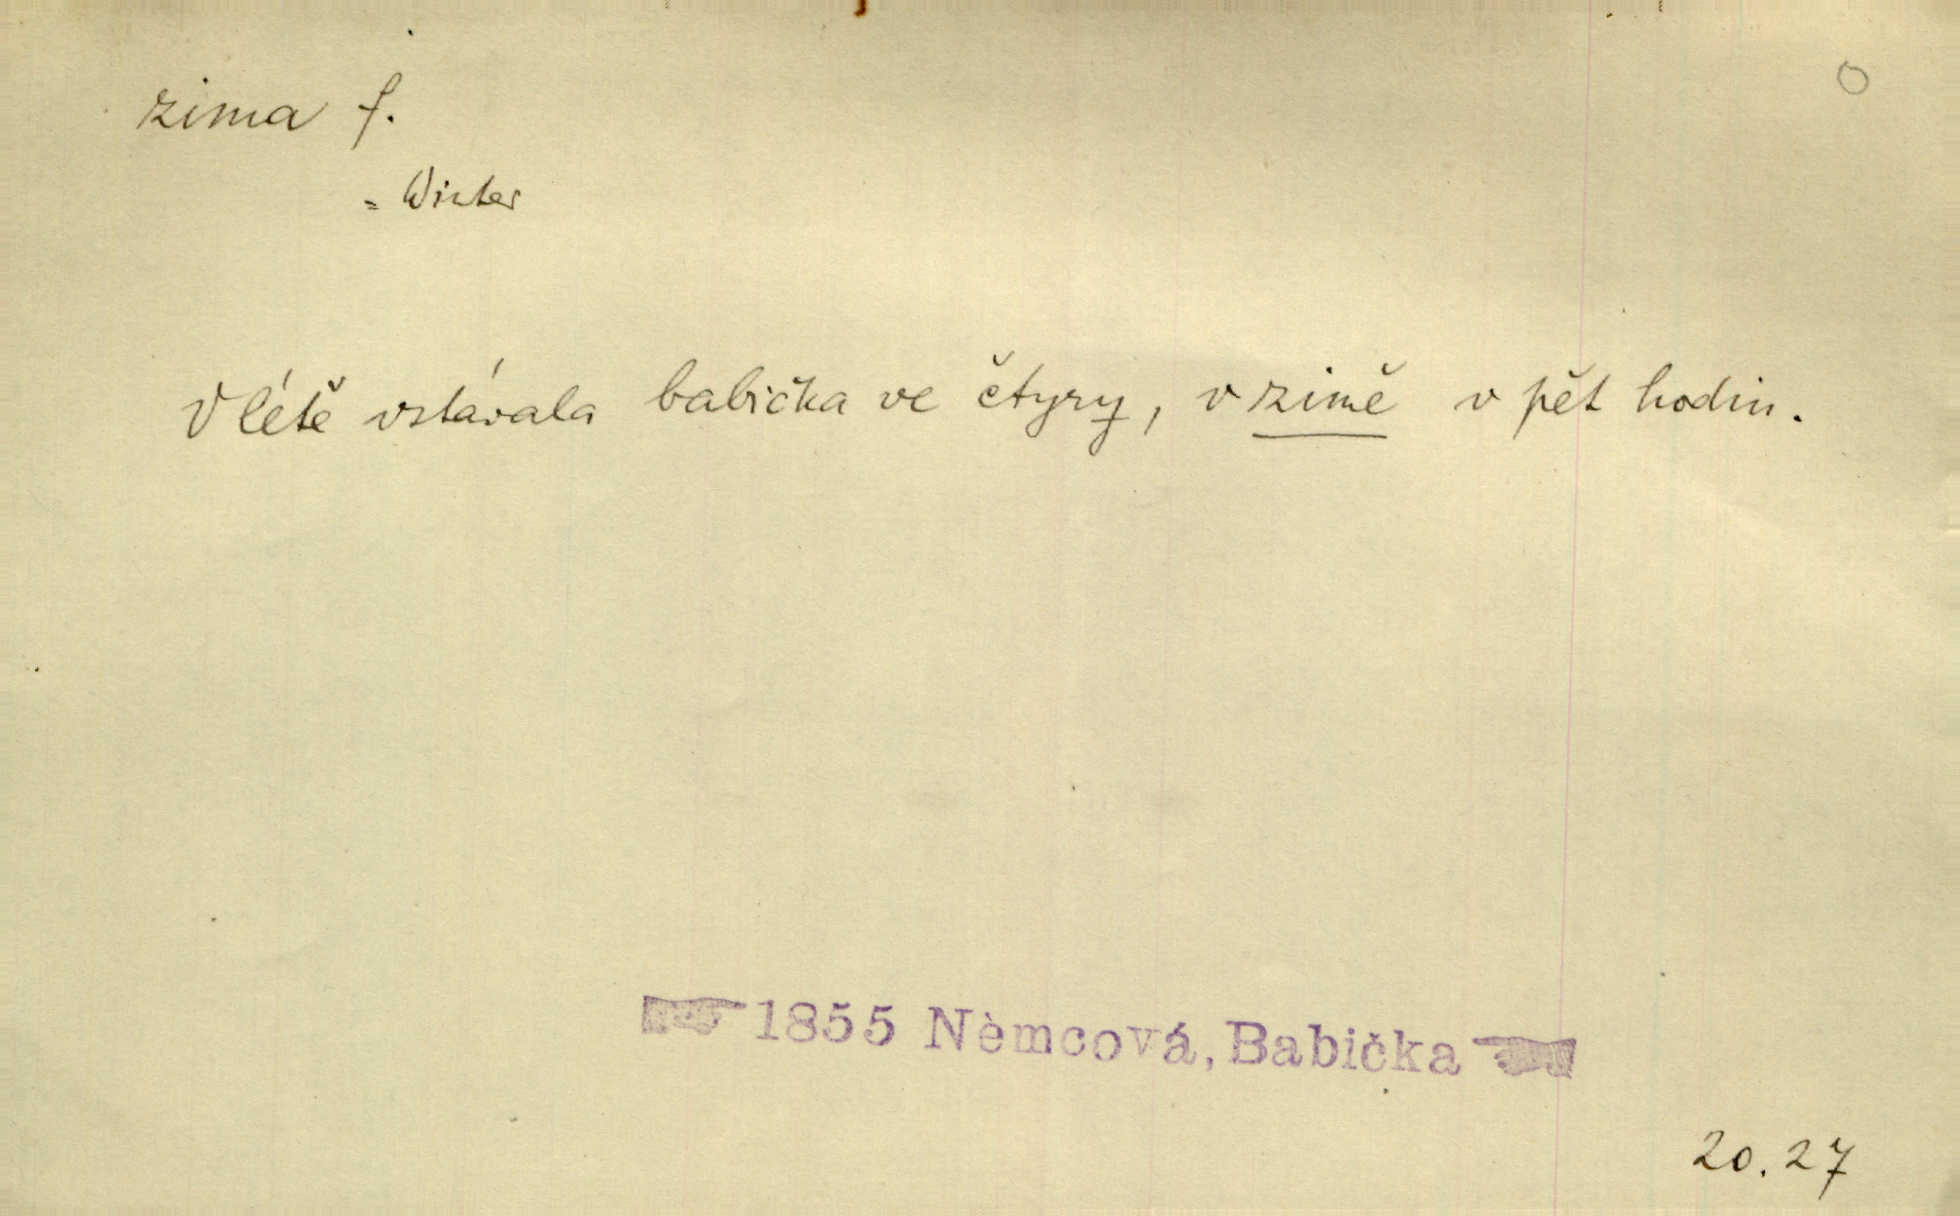 zima f.
= Winter
V létě vstávala babička ve čtyry, v zimě v pět hodin.
1855 Nèmcová, Babička
20.27